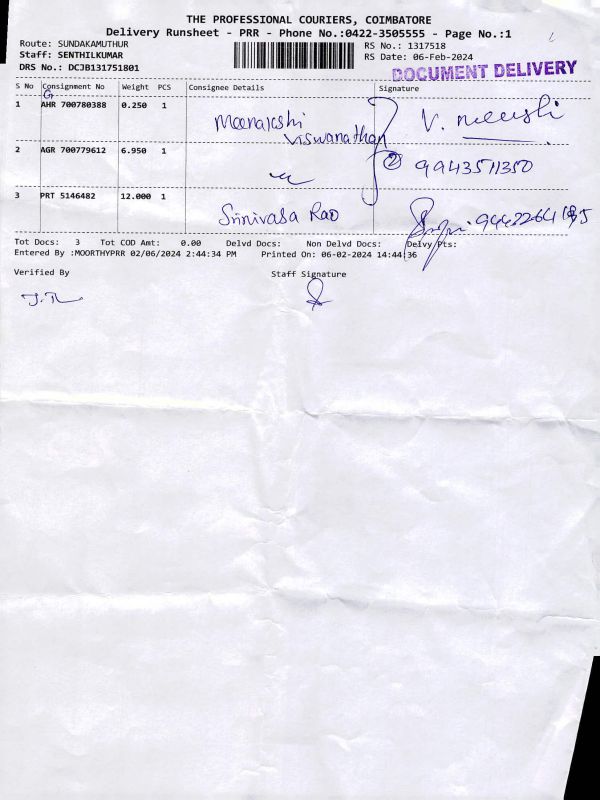 THE PROFESSIONAL COURIERS, COIMBATORE
Delivery Runsheet - PRR - Phone No.:0422-3505555 - Page No.:1
Route: SUNDAKAMUTHUR
RS No.: 1317518
Staff: SENTHILKUMAR
RS Date: 06-Feb-2024
DRS No.: DCJB131751801
DOCUMENT DELIVERY
S No Consignment No Weight PCS Consignee Details Signature
G
1 AHR 700780388 0.250 1 Meenakshi Viswanathan V. Meenakshi
2 AGR 700779612 6.950 1 2 9943511350
3 PRT 5146482 12.000 1 Srinivasa Rao
Tot Docs: 3 Tot COD Amt: 0.00 Delvd Docs: Non Delvd Docs: Delvy Pts:
Entered By :MOORTHYPRR 02/06/2024 2:44:34 PM Printed On: 06-02-2024 14:44:36
Verified By Staff Signature